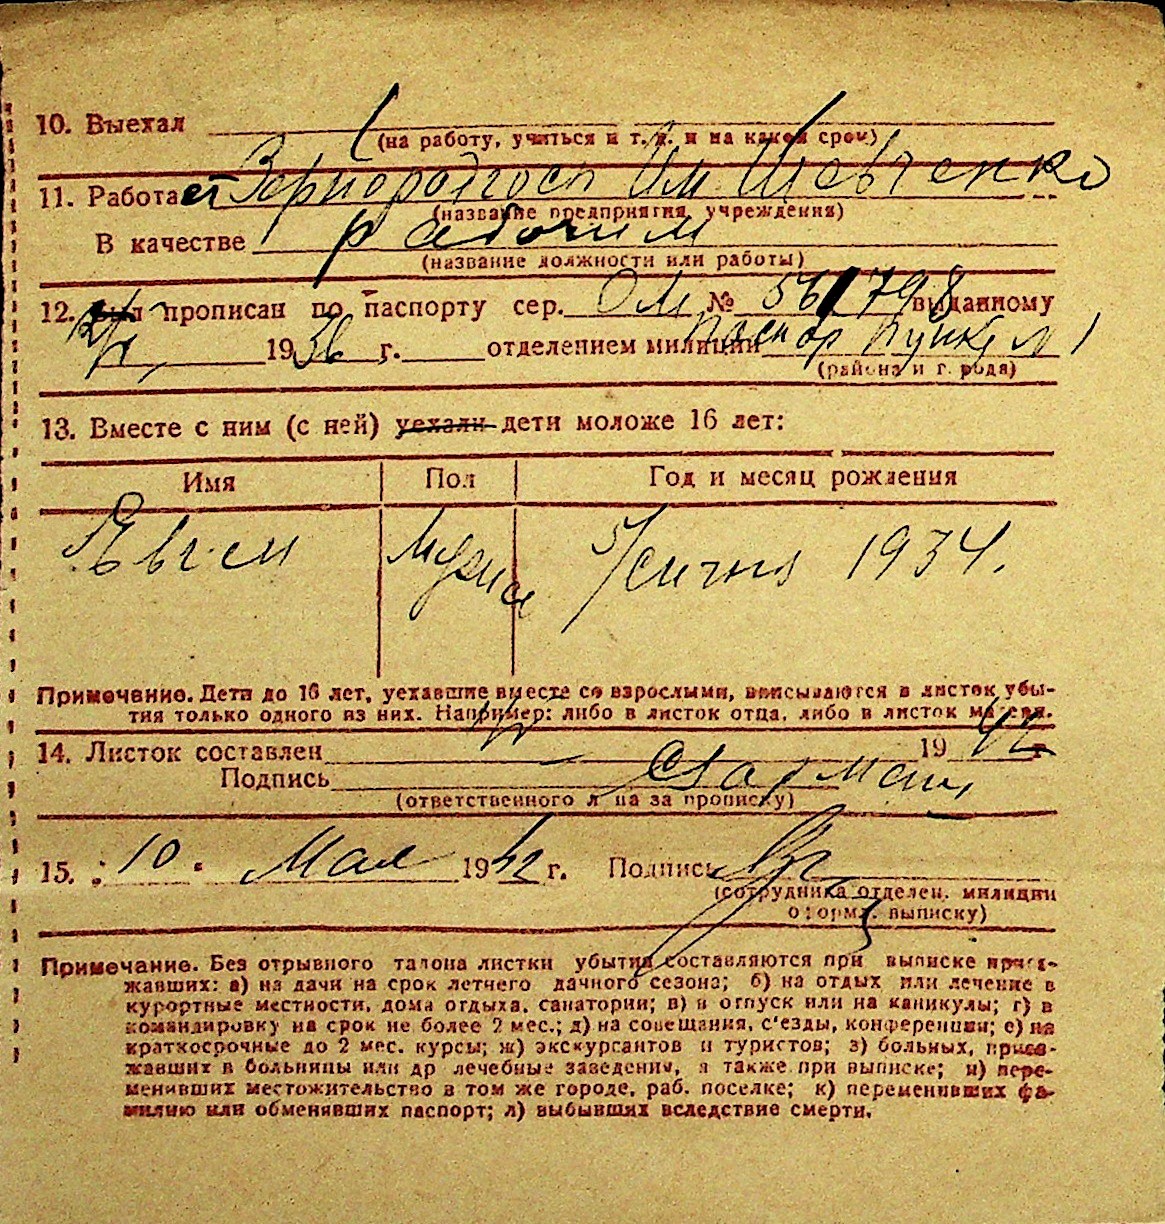 10. Выехал
(на работу, учиться и т. д. и на какой срок)
11. Работает Зернорадгосп Им. Шевченко
(название предприятия, учреждения)
В качестве рабочим
(название должности или работы)
12. Был прописан по паспорту сер. ОМ № 561798 выданному
1936 г. отделением милиции Паспор Пунк, №1
(района и города)
13. Вместе с ним (с ней) уехали дети моложе 16 лет:
Имя Пол Год и месяц рождения
Явген 5/ 1934.
Примечание. Дети до 16 лет, уехавшие вместе со взрослыми, вписываются в листок убы-
тия только одного из них. Например: либо в листок отца, либо в листок матери.
14. Листок составлен 1942 г.
Подпись
(ответственного лица за прописку)
15. „10" Мая 1942 г. Подпись
(сотрудника отделен. милиции
оформл. выписку)
Примечание. Без отрывного талона листки убытия составляются при выписке приез-
жавших: а) на дачи на срок летнего дачного сезона; б) на отдых или лечение в
курортные местности, дома отдыха, санатории; в) в отпуск или на каникулы; г) в
командировку на срок не более 2 мес.; д) на совещания, с'езды, конференции; е) на
краткосрочные до 2 мес. курсы; ж) экскурсантов и туристов; з) больных, приез-
жавших в больницы или др лечебные заведения, а также при выписке; и) пере-
менивших местожительство в том же городе, раб. поселке; к) переменивших фа-
милию или обменявших паспорт; л) выбывших вследствие смерти.